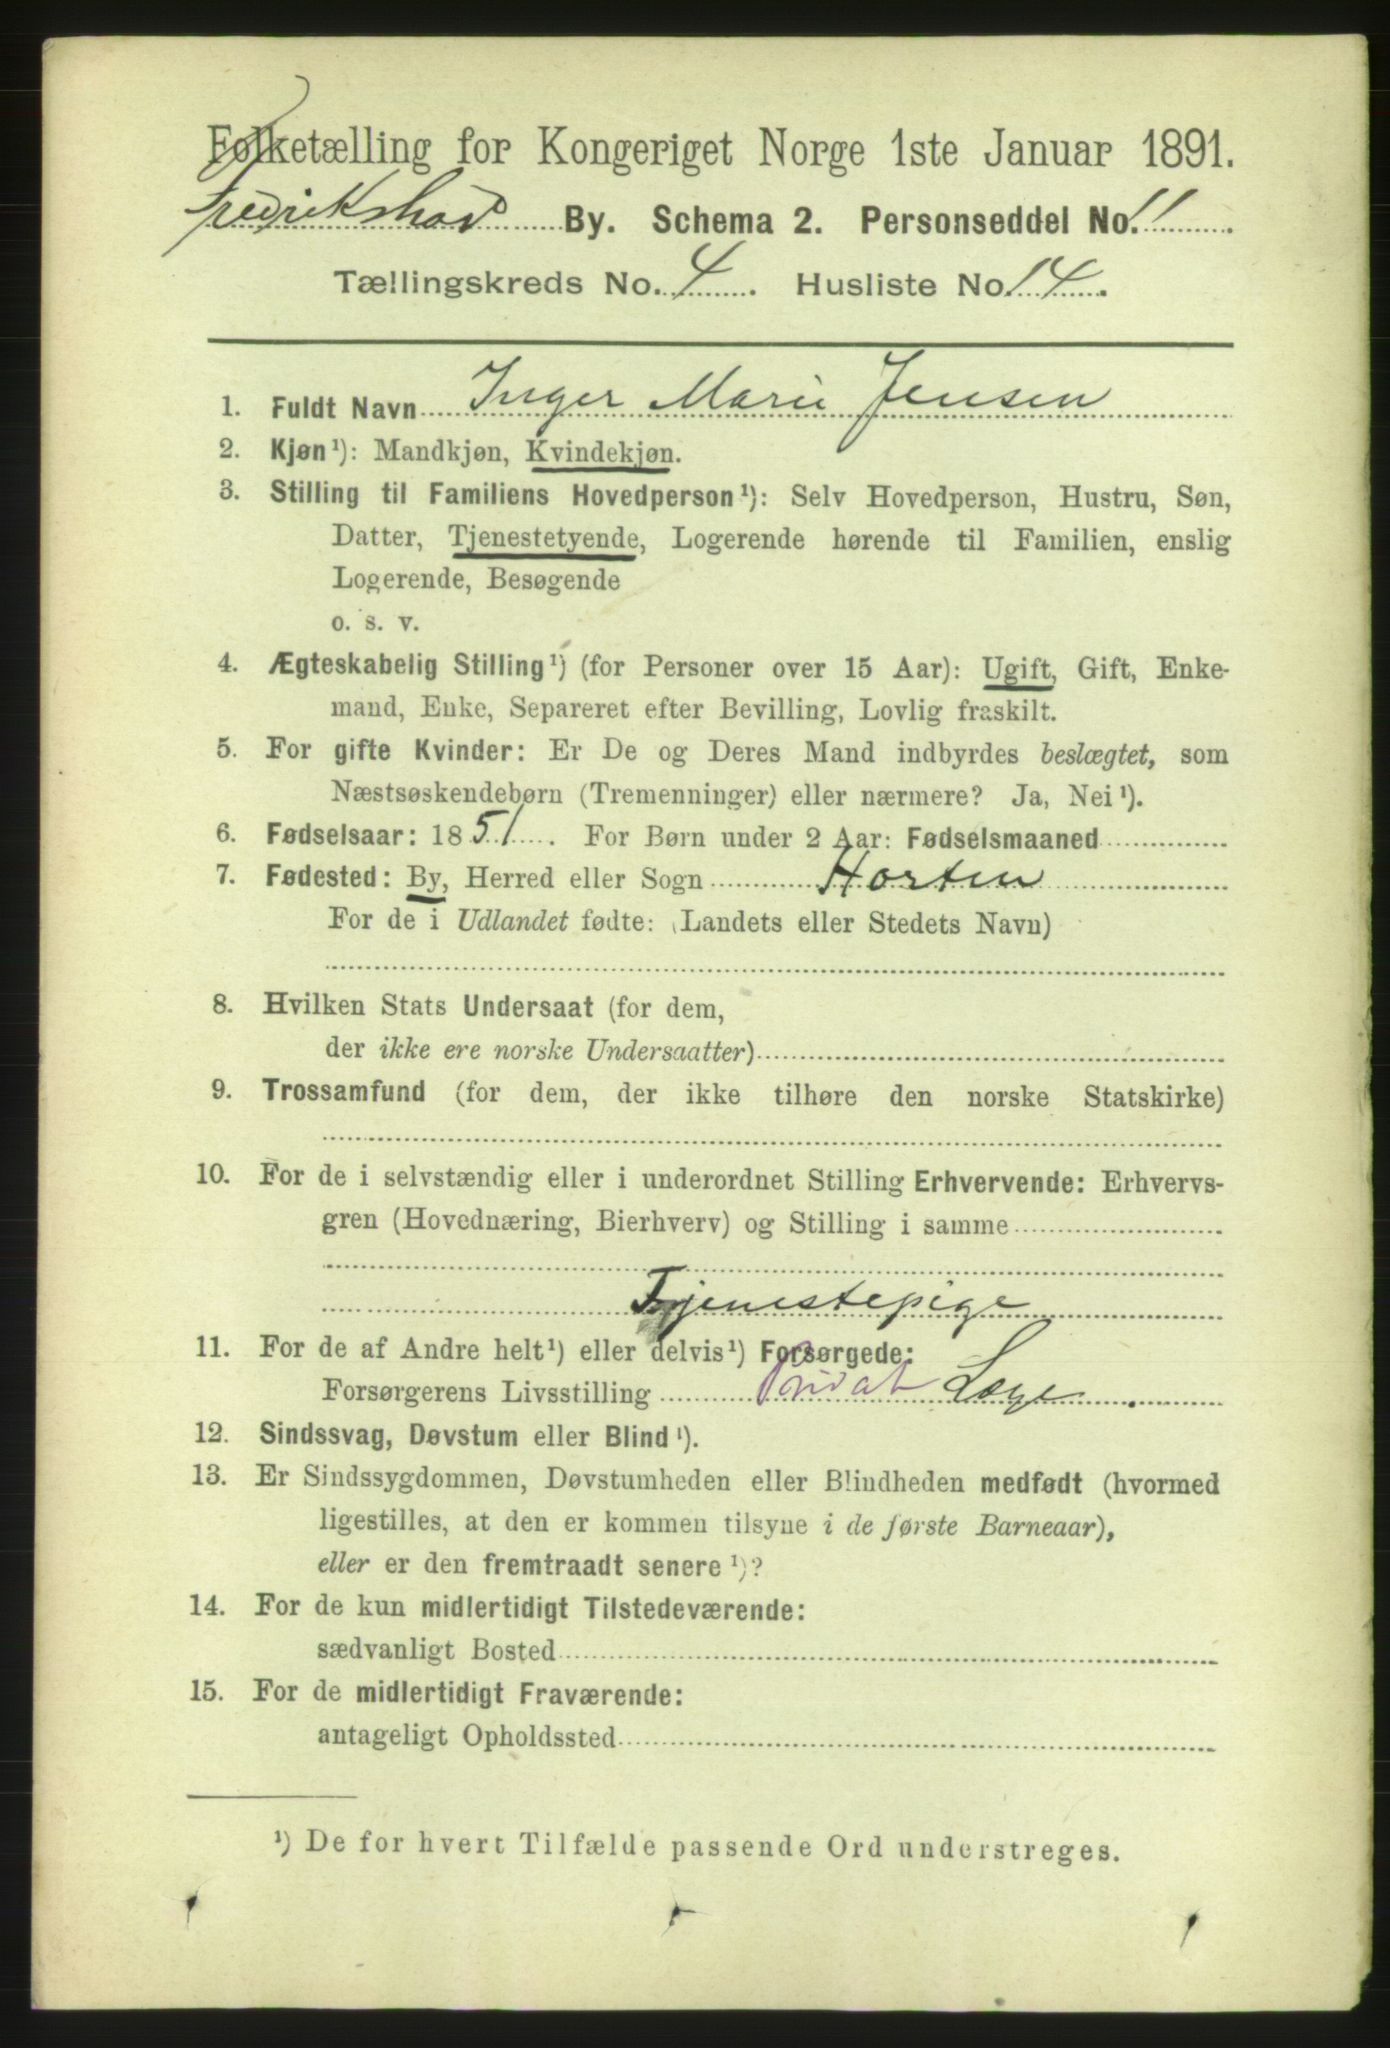 Folketælling for Kongeriget Norge 1ste Januar 1891.
Fredrikshald By. Schema 2. Personseddel No. 11.
Tællingskreds No. 4. Husliste No. 14.
1. Fuldt Navn Inger Marie Jensen
2. Kjøn¹): Mandkjøn, Kvindekjøn.
3. Stilling til Familiens Hovedperson¹): Selv Hovedperson, Hustru, Søn,
Datter, Tjenestetyende, Logerende hørende til Familien, enslig
Logerende, Besøgende
o. s. v.
4. Ægteskabelig Stilling¹) (for Personer over 15 Aar): Ugift, Gift, Enke-
mand, Enke, Separeret efter Bevilling, Lovlig fraskilt.
5. For gifte Kvinder: Er De og Deres Mand indbyrdes beslægtet, som
Næstsøskendebørn (Tremenninger) eller nærmere? Ja, Nei¹).
6. Fødselsaar: 1851. For Børn under 2 Aar: Fødselsmaaned
7. Fødested: By, Herred eller Sogn Horten
For de i Udlandet fødte: (Landets eller Stedets Navn)
8. Hvilken Stats Undersaat (for dem,
der ikke ere norske Undersaatter)
9. Trossamfund (for dem, der ikke tilhøre den norske Statskirke)
10. For de i selvstændig eller i underordnet Stilling Erhvervende: Erhvervs-
gren (Hovednæring, Bierhverv) og Stilling i samme
Tjenestepige
11. For de af Andre helt¹) eller delvis¹) Forsørgede:
Forsørgerens Livsstilling Privat Læge.
12. Sindssvag, Døvstum eller Blind¹).
13. Er Sindssygdommen, Døvstumheden eller Blindheden medfødt (hvormed
ligestilles, at den er kommen tilsyne i de første Barneaar),
eller er den fremtraadt senere¹)?
14. For de kun midlertidigt Tilstedeværende:
sædvanligt Bosted
15. For de midlertidigt Fraværende:
antageligt Opholdssted
¹) De for hvert Tilfælde passende Ord understreges.